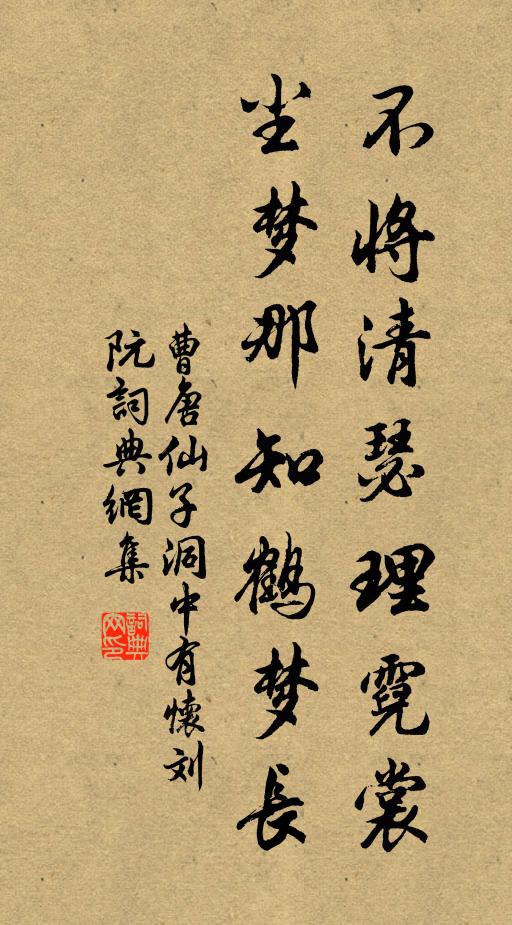 不将清瑟理霓裳
尘梦那知鹤梦長
曹唐仙子洞中有懷刘
阮詞典網集
詞典网印